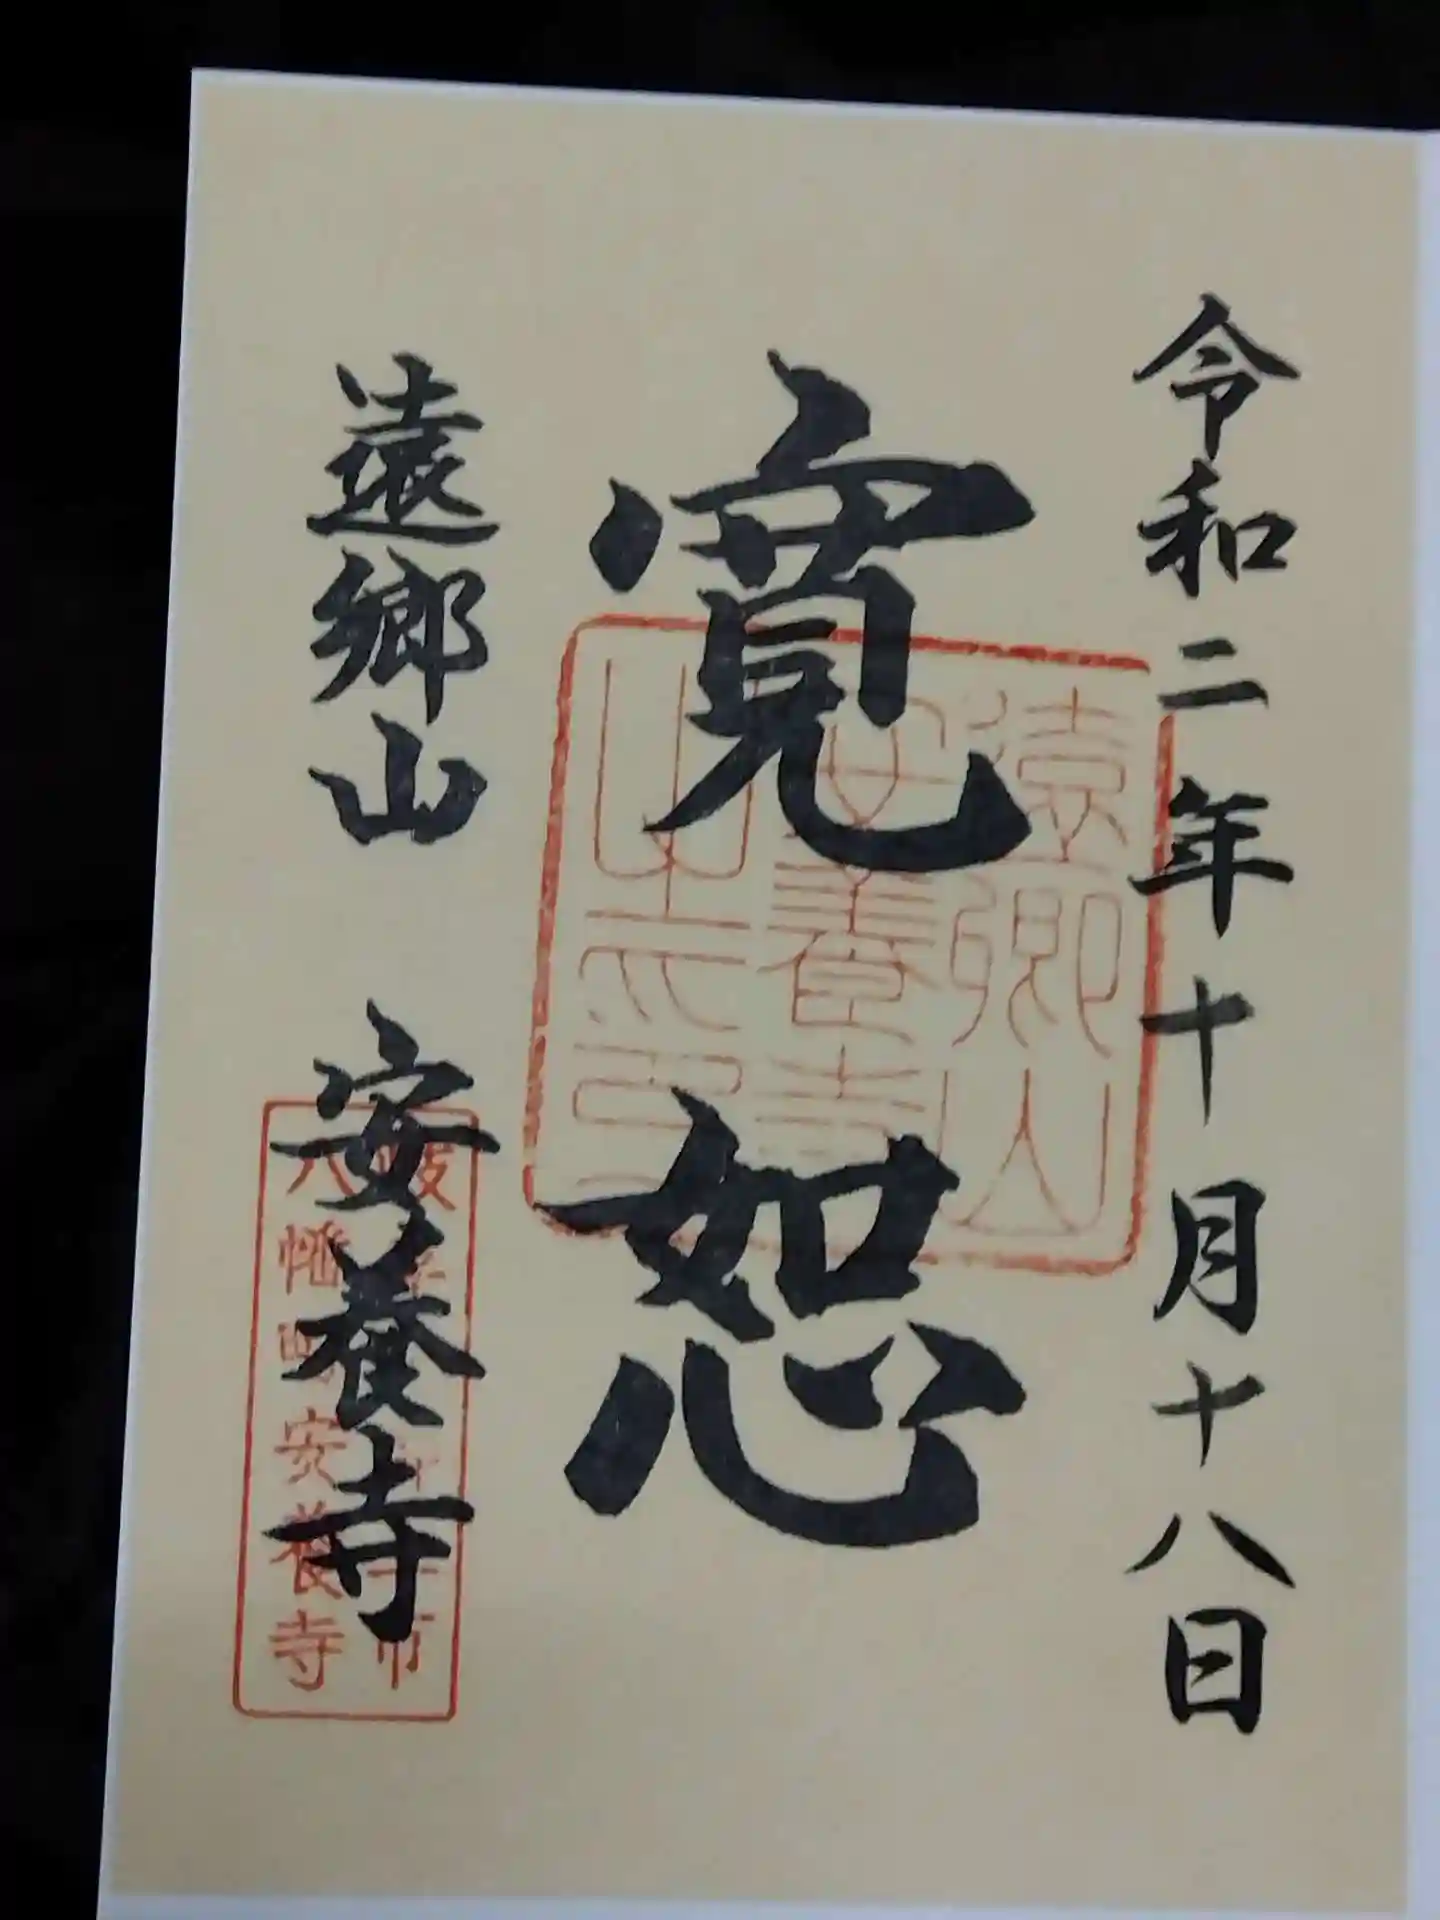 令和二年十月十八日
寛恕
遠郷山 安養寺
遠郷山
安養寺
山之印
八幡町安養寺